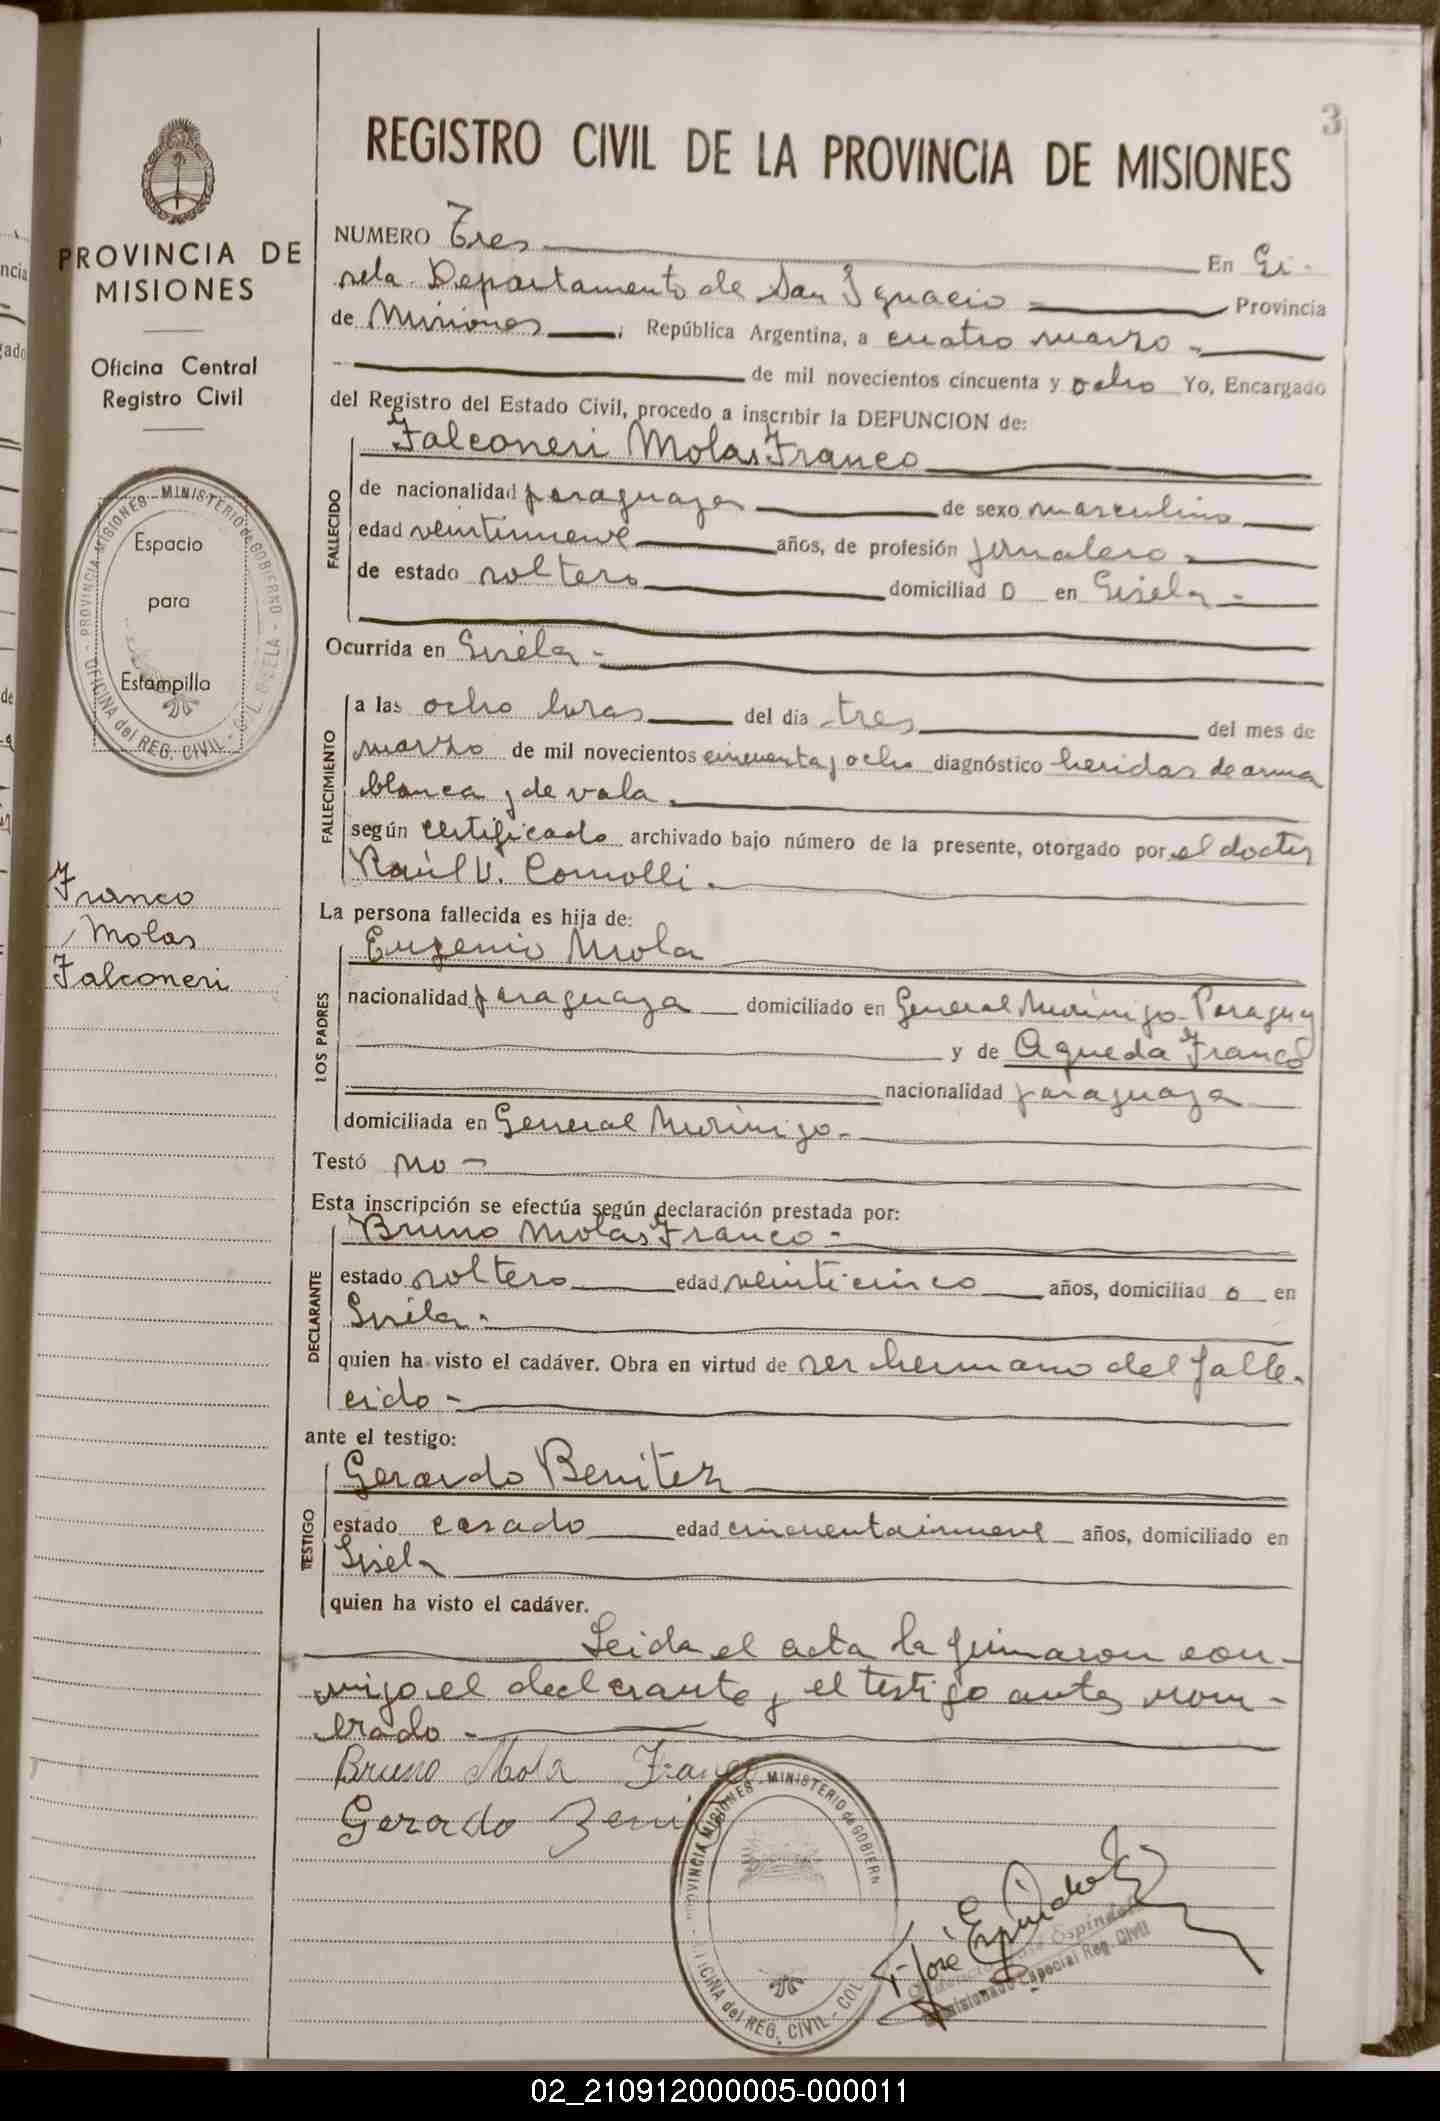 3
REGISTRO CIVIL DE LA PROVINCIA DE MISIONES
PROVINCIA DE
MISIONES
Oficina Central
Registro Civil
PROVINCIA MISIONES - MINISTERIO de GOBIERNO - OFICINA del REG. CIVIL - GISELA
Espacio
para
Estampilla
Franco
Molas
Falconeri
NUMERO Tres En Gi-
sela Departamento de San Ignacio Provincia
de Misiones, República Argentina, a cuatro marzo
de mil novecientos cincuenta y ocho Yo, Encargado
del Registro del Estado Civil, procedo a inscribir la DEFUNCION de:
Falconeri Molas Franco
FALLECIDO
de nacionalidad paraguaya de sexo masculino
edad veintinueve años, de profesión jornalero
de estado soltero domiciliad o en Gisela
Ocurrida en Gisela
FALLECIMIENTO
a las ocho horas del dia tres del mes de
marzo de mil novecientos cincuenta y ocho diagnóstico heridas de arma
blanca y de vala
según certificado archivado bajo número de la presente, otorgado por el doctor
Raúl V. Comolli.
La persona fallecida es hija de:
LOS PADRES
Eugenio Mola
nacionalidad paraguaya domiciliado en General Murinigo Paraguy
y de Agueda Franco
nacionalidad paraguaya
domiciliada en General Murinigo
Testó no
Esta inscripción se efectúa según declaración prestada por:
DECLARANTE
Bruno Molas Franco
estado soltero edad veinticinco años, domiciliad o en
Gisela
quien ha visto el cadáver. Obra en virtud de ser hermano del falle-
cido
ante el testigo:
TESTIGO
Gerardo Benitez
estado casado edad cincuentainueve años, domiciliado en
Gisela
quien ha visto el cadáver.
Leida el acta la firmaron con-
migo el declarante y el testigo antes nom-
brado
Bruno Mola Franco
Gerardo Beni
PROVINCIA MISIONES - MINISTERIO de GOBIERN
OFICINA del REG. CIVIL - COL
José Espindola
Espindola
Comisionado Especial Reg. Civil
02_210912000005-000011